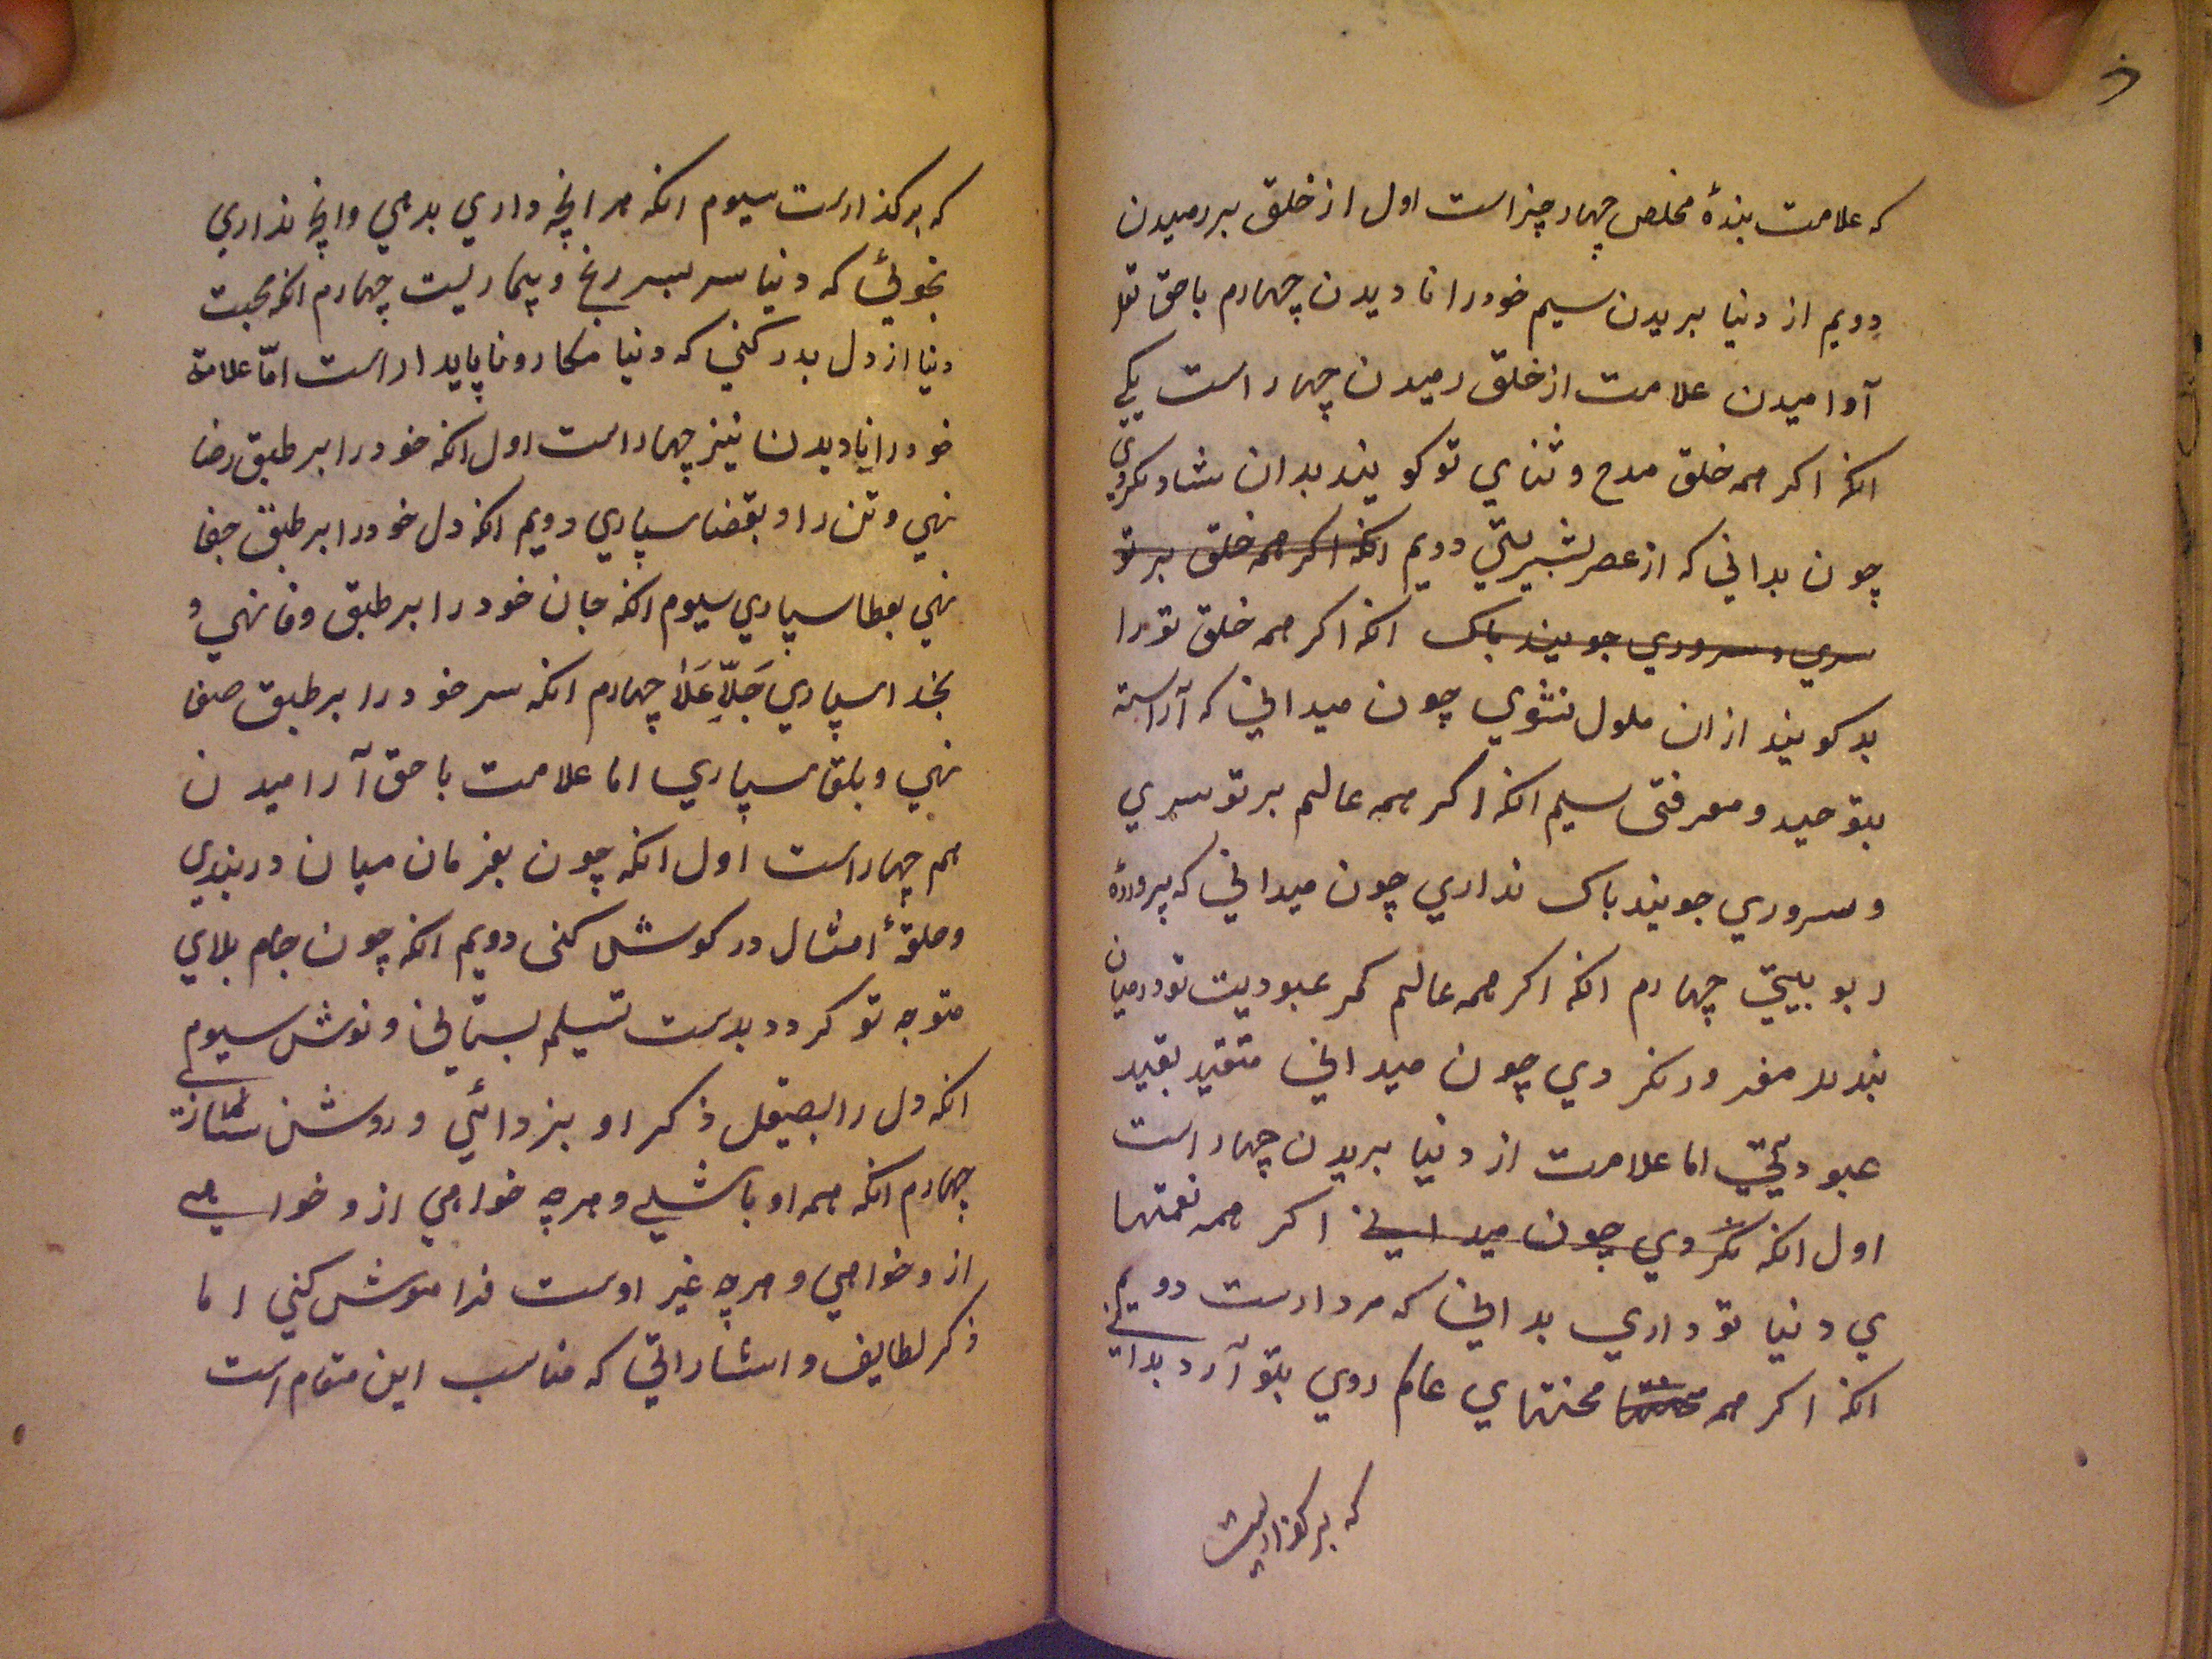 که علامت بندهٔ مخلص چهار چیز است اول از خلق بر رمیدن
دویم از دنیا بریدن سیم خود را نادیدن چهارم با حق تعـ
آرامیدن علامت از خلق رمیدن چهار است یکی
انکه اکر همه خلق مدح و ثنای تو کویند بدان شاد نکردی
چون بدانی که از عصر بشیریتی دویم انکه اکر همه خلق بر تو
سری و سروری جویند باک انکه اکر همه خلق تو را
بد کویند از ان ملول نشوی چون میدانی که آراسته
بتوحید و معرفتی سیم انکه اکر همه عالم بر تو سری
و سروری جویند باک نداری چون میدانی که پروردهٔ
ربوبیتی چهارم انکه اکر همه عالم کمر عبودیت تو در میان
بندند مغرور نکردی چون میدانی متقید بقید
عبودیتی اما علامت از دنیا بریدن چهار است
اول انکه نکردی چون میدانی اکر همه نعمتها
ی دنیا تو داری بدانی که مردارست دویم
انکه اکر همه محنتهای عالم روی بتو آرد بدانی
که بر کذارست
که بر کذارست سیوم انکه هر انچه داری بدهی و انچه نداری
نجوئی که دنیا سر بسر رنج و بیماریست چهارم انکه محبت
دنیا از دل بدر کنی که دنیا مکار و ناپایدار است امّا علامة
خود را نادیدن نیز چهار است اول انکه خود را بر طبق رضا
نهی و تن را و بقضا سپاری دویم انکه دل خود را بر طبق جفا
نهی بعطا سپاری سیوم انکه جان خود را بر طبق وفا نهی و
بخدا سپاری جَلّ عَلا چهارم انکه سر خود را بر طبق صفا
نهی و بلقا سپاری اما علامت با حق آرامیدن
هم چهار است اول انکه چون بفرمان میان در بندی
و حلقهٔ امتثال در کوش کنی دویم انکه چون جام بلای
متوجه تو کردد بدست تسیلم بستانی و نوش سیوم
انکه دل را بصیقل ذکر او بزدائی و روشن
چهارم انکه همه او باشی و هرچه خواهی ازو خواهی
ازو خواهی و هرچه غیر اوست فراموش کنی اما
ذکر لطایف و اشاراتی که مناسب این مقام است